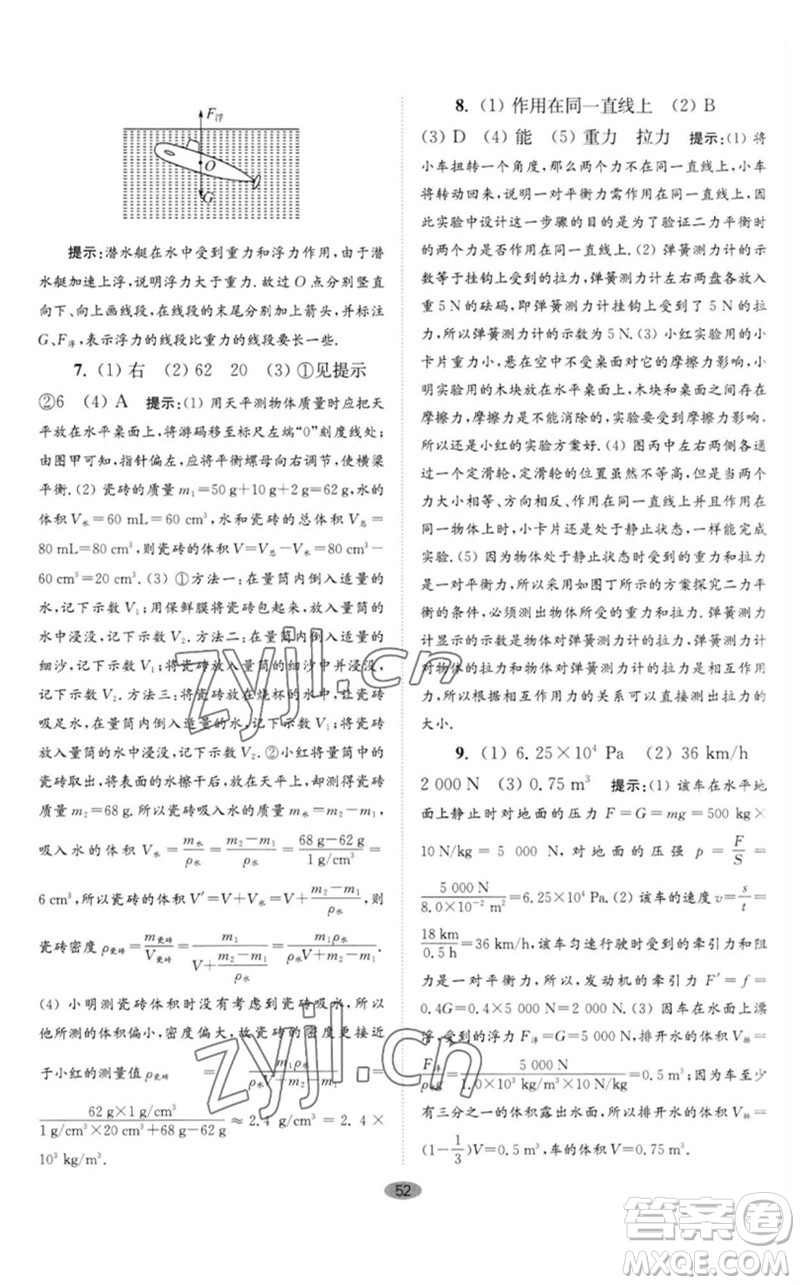 F浮
O
G
提示:潜水艇在水中受到重力和浮力作用,由于潜
水艇加速上浮,说明浮力大于重力.故过 O 点分别竖直
向下、向上画线段,在线段的末尾分别加上箭头,并标注
G、F浮,表示浮力的线段比重力的线段要长一些.
7. (1) 右 (2) 62 20 (3) ①见提示
②6 (4) A 提示:(1) 用天平测物体质量时应把天
平放在水平桌面上,将游码移至标尺左端“0”刻度线处;
由图甲可知,指针偏左,应将平衡螺母向右调节,使横梁
平衡.(2) 瓷砖的质量 m₁=50 g+10 g+2 g=62 g,水的
体积 V水=60 mL=60 cm³,水和瓷砖的总体积 V总=
80 mL=80 cm³,则瓷砖的体积 V=V总-V水=80 cm³-
60 cm³=20 cm³.(3) ①方法一:在量筒内倒入适量的
水,记下示数 V₁;用保鲜膜将瓷砖包起来,放入量筒的
水中浸没,记下示数 V₂.方法二:在量筒内倒入适量的
细沙,记下示数 V₁;将瓷砖放入量筒的细沙中并浸没,
记下示数 V₂.方法三:将瓷砖放在烧杯的水中,让瓷砖
吸足水,在量筒内倒入适量的水,记下示数 V₁;将瓷砖放
入量筒的水中浸没,记下示数 V₂.②小红将实验后的
瓷砖取出,将表面的水擦干后,放在天平上,测出瓷砖
质量 m₂=68 g.所以瓷砖吸入水的质量 m水=m₂-m₁,
吸入水的体积 V水=m水/ρ水=(m₂-m₁)/ρ水=(68 g-62 g)/(1 g/cm³)=
6 cm³,所以瓷砖的体积 V′=V+V水=V+(m₂-m₁)/ρ水,则
瓷砖密度 ρ瓷砖=m瓷砖/V瓷砖=m₁/(V+(m₂-m₁)/ρ水)=m₁ρ水/(ρ水V+m₂-m₁).
(4) 小明测瓷砖体积时没有考虑到瓷砖吸水,所以
他所测的体积偏小,密度偏大.故瓷砖的密度更接近
于小红的测量值 ρ瓷砖=m₁ρ水/(ρ水V+m₂-m₁)=
(62 g×1 g/cm³)/(1 g/cm³×20 cm³+68 g-62 g)≈2.4 g/cm³=2.4×
10³ kg/m³.
8. (1) 作用在同一直线上 (2) B
(3) D (4) 能 (5) 重力 拉力 提示:(1) 将
小车扭转一个角度,那么两个力不在同一直线上,小车
将转动回来,说明一对平衡力需作用在同一直线上,因
此实验中设计这一步骤的目的是为了验证二力平衡时
的两个力在同一直线上.(2) 弹簧测力计的
示数等于挂钩上受到的拉力,弹簧测力计左右两盘各放入
重 5 N 的砝码,即弹簧测力计挂钩上受到了 5 N 的拉
力,所以弹簧测力计的示数为 5 N.(3) 小红实验用的小
卡片质量小,悬在空中不受桌面对它的摩擦力影响,小
明实验用的木块放在水平桌面上,木块和桌面之间存在
摩擦力,摩擦力是不能消除的,实验要受到摩擦力的影
响,所以小红的实验方案好.(4) 图丙中左右两边各通
过一个定滑轮,定滑轮的作用是改变力的方向,在大小
相等、方向相反、作用在同一直线上,作用在同一个物
体上时,小卡片处于静止状态,小明能用此装置进行
实验.(5) 因为物体处于静止状态,物体受到的力
是一对平衡力,所以小明用图丁所示的方案探究二力平
衡的条件,必须测出物体的重力和拉力.弹簧测力
计显示的示数是物体对弹簧测力计的拉力,弹簧测力
计对物体的拉力和物体对弹簧测力计的拉力是相互作用
力,所以根据相互作用力的关系可以直接测出拉力的
大小.
9. (1) 6.25×10⁴ Pa (2) 36 km/h
2 000 N (3) 0.75 m³ 提示:(1) 该车在水平地
面上静止时对地面的压力 F=G=mg=500 kg×
10 N/kg=5 000 N,对地面的压强 p=F/S=
5 000 N/(8.0×10⁻² m²)=6.25×10⁴ Pa.(2) 该车的速度 v=s/t=
18 km/0.5 h=36 km/h,该车匀速行驶时受到的牵引力和阻
力是一对平衡力,所以,发动机的牵引力 F′=f=
0.4G=0.4×5 000 N=2 000 N.(3) 因车在水面上漂
浮,受到的浮力 F浮=G=5 000 N,排开水的体积 V排=
F浮/(ρ水g)=5 000 N/(1.0×10³ kg/m³×10 N/kg)=0.5 m³;因车至少
有三分之一的体积露出水面,所以,排开水的体积 V排=
(1-1/3)V=0.5 m³,车的体积 V=0.75 m³.
52
zyjl.cn
zyjl.cn
答案圈
MXQE.COM